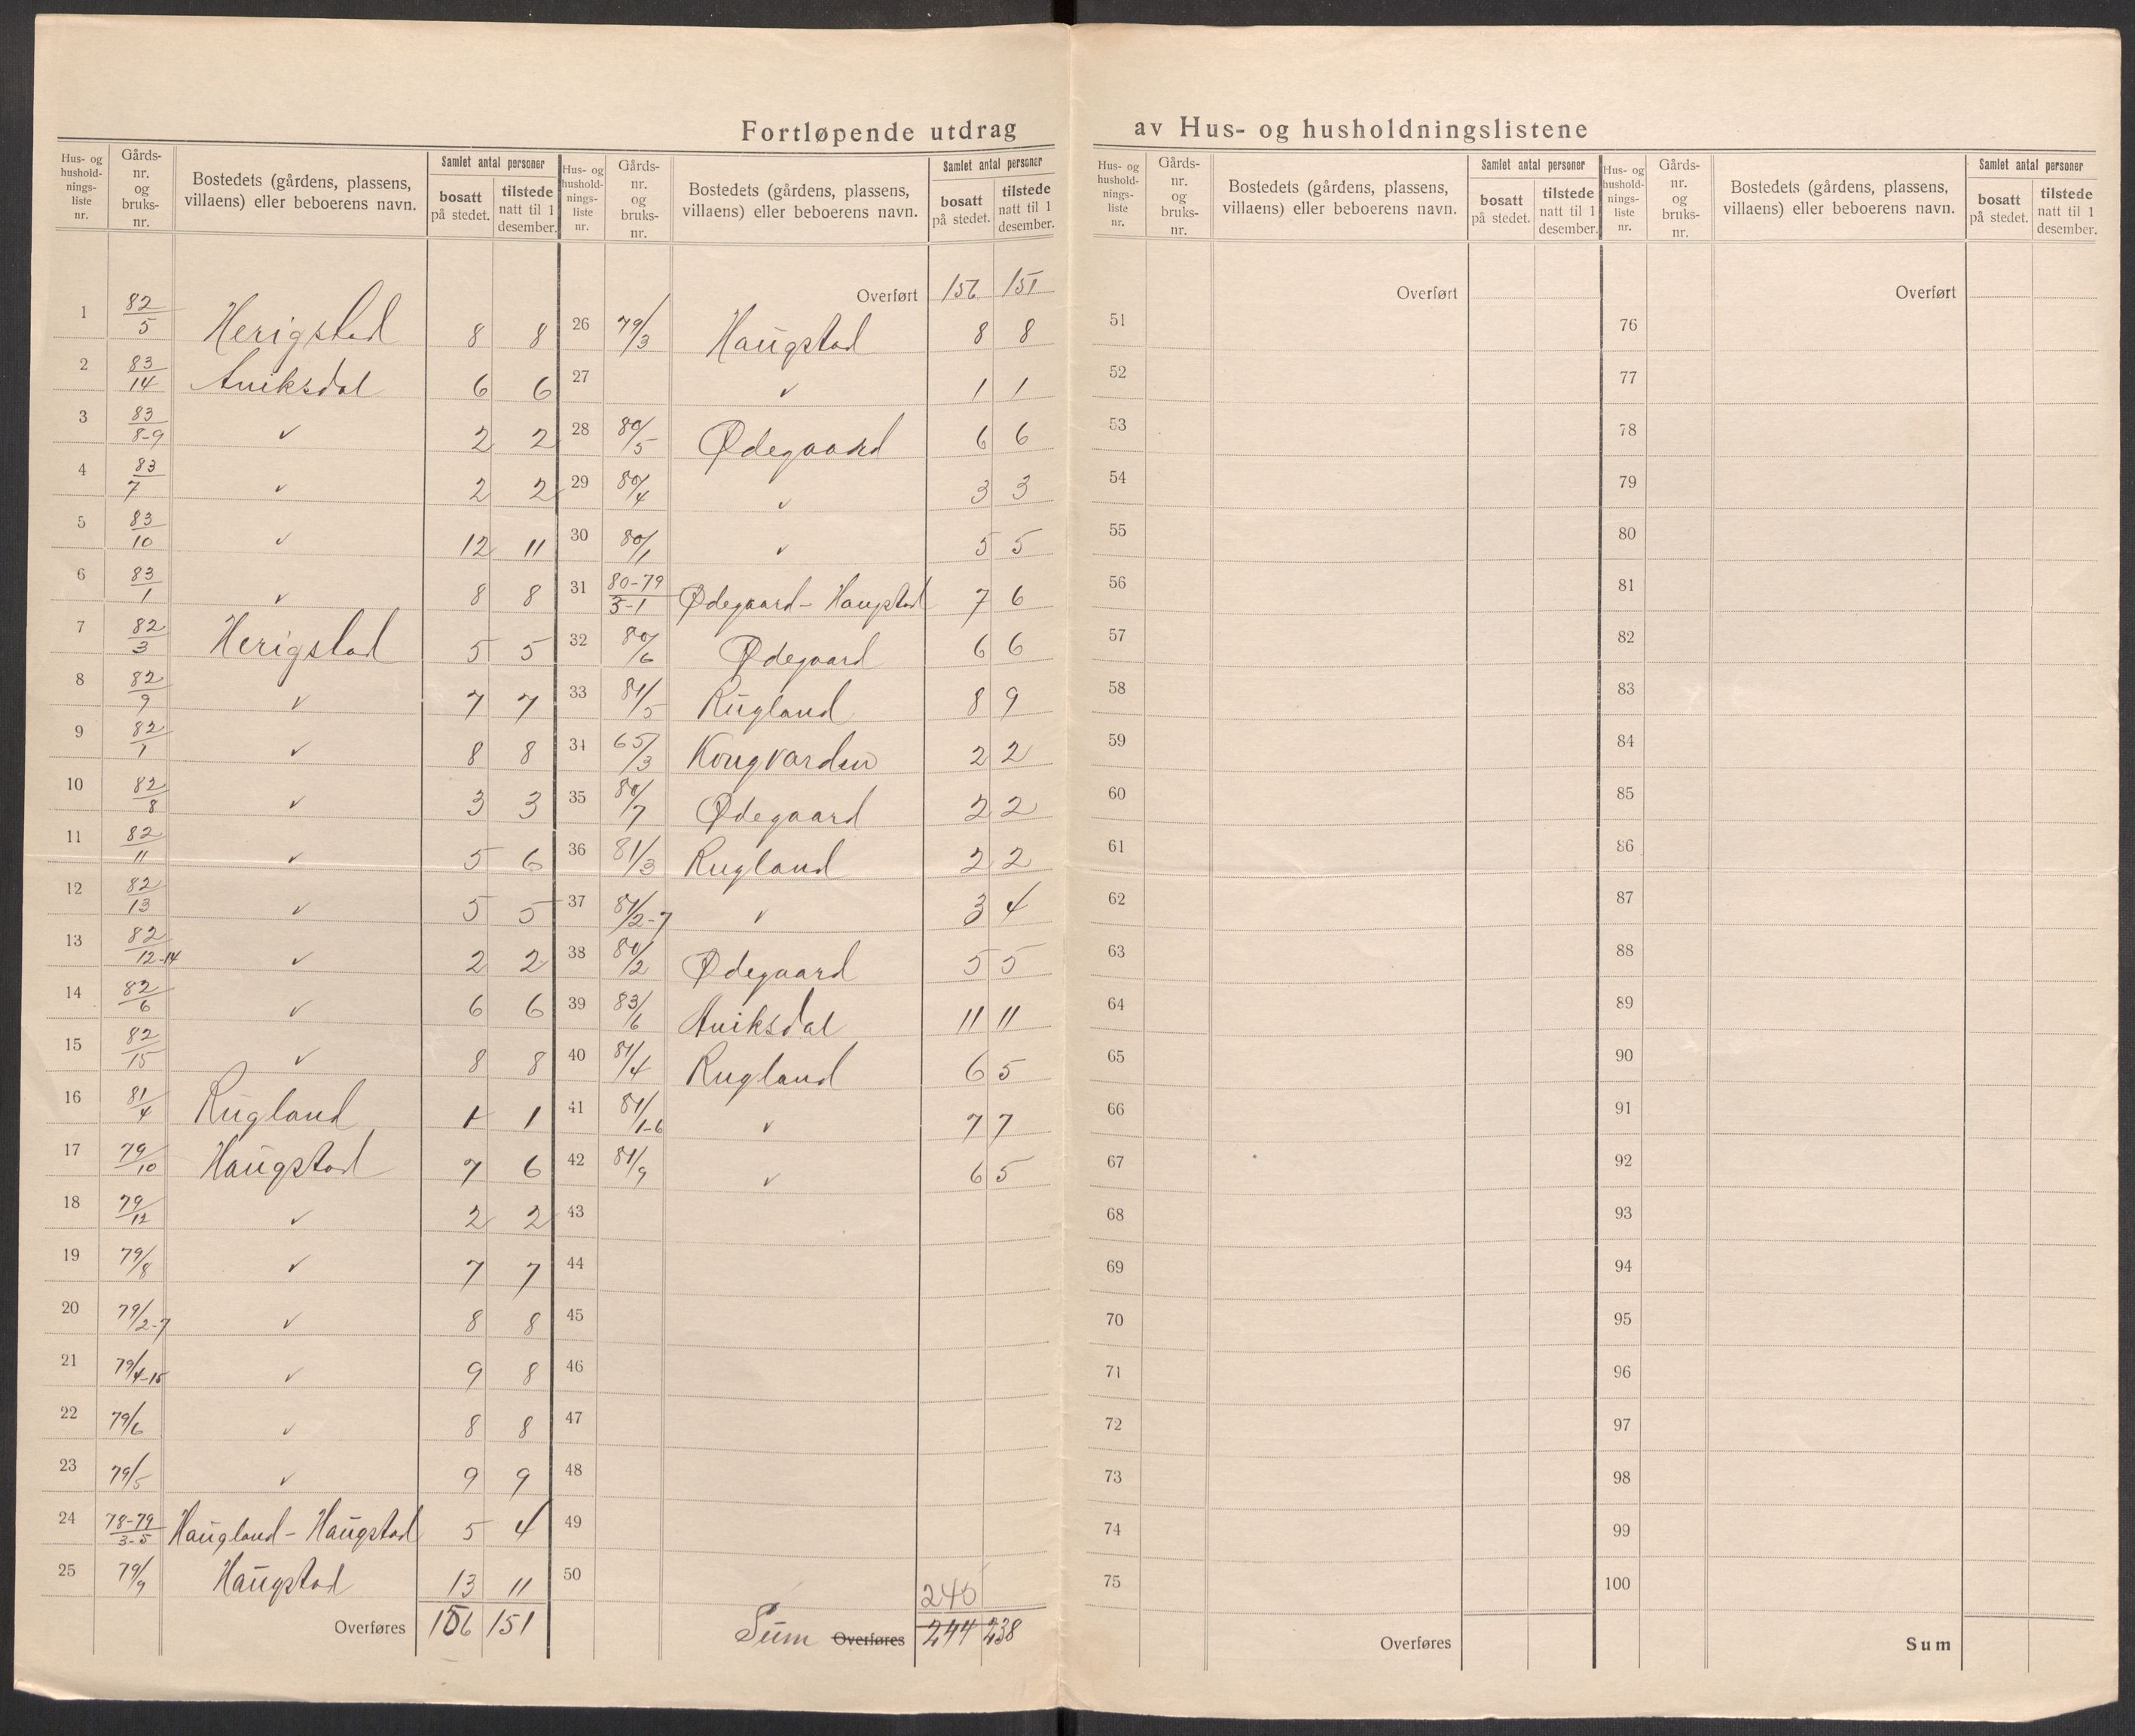 Fortløpende utdrag av Hus- og husholdningslistene
Hus- og hushold- nings- liste nr. | Gårds- nr. og bruks- nr. | Bostedets (gårdens, plassens, villaens) eller beboerens navn. | Samlet antal personer | bosatt på stedet. | tilstede natt til 1 desember.
1 82/5 Herigstad 8 8
2 83/14 Aniksdal 6 6
3 83/8-9 ✓ 2 2
4 83/7 ✓ 2 2
5 83/10 ✓ 12 11
6 83/1 ✓ 8 8
7 82/3 Herigstad 5 5
8 82/9 ✓ 7 7
9 82/1 ✓ 8 8
10 82/8 ✓ 3 3
11 82/11 ✓ 5 6
12 82/13 ✓ 5 5
13 82/12-14 ✓ 2 2
14 82/6 ✓ 6 6
15 82/15 ✓ 8 8
16 81/4 Rugland 1 1
17 79/10 Haugstad 7 6
18 79/12 ✓ 2 2
19 79/8 ✓ 7 7
20 79/2-7 ✓ 8 8
21 79/4-15 ✓ 9 8
22 79/6 ✓ 8 8
23 79/5 ✓ 9 9
24 78-79/3-5 Haugland - Haugstad 5 4
25 79/9 Haugstad 13 11
Overføres 156 151
Hus- og hushold- nings- liste nr. | Gårds- nr. og bruks- nr. | Bostedets (gårdens, plassens, villaens) eller beboerens navn. | Samlet antal personer | bosatt på stedet. | tilstede natt til 1 desember.
Overført 156 151
26 79/3 Haugstad 8 8
27 ✓ 1 1
28 80/5 Ødegaard 6 6
29 80/4 ✓ 3 3
30 80/1 ✓ 5 5
31 80-79/3-1 Ødegaard - Haugstad 7 6
32 80/6 Ødegaard 6 6
33 81/5 Rugland 8 9
34 65/3 Kongvarden 2 2
35 80/7 Ødegaard 2 2
36 81/3 Rugland 2 2
37 81/2-7 ✓ 3 4
38 80/2 Ødegaard 5 5
39 83/6 Aniksdal 11 11
40 81/4 Rugland 6 5
41 81/1-6 ✓ 7 7
42 81/9 ✓ 6 5
43
44
45
46
47
48
49
50
245
Sum Overføres 244 238
Hus- og hushold- nings- liste nr. | Gårds- nr. og bruks- nr. | Bostedets (gårdens, plassens, villaens) eller beboerens navn. | Samlet antal personer | bosatt på stedet. | tilstede natt til 1 desember.
Overført
51
52
53
54
55
56
57
58
59
60
61
62
63
64
65
66
67
68
69
70
71
72
73
74
75
Overføres
Hus- og hushold- nings- liste nr. | Gårds- nr. og bruks- nr. | Bostedets (gårdens, plassens, villaens) eller beboerens navn. | Samlet antal personer | bosatt på stedet. | tilstede natt til 1 desember.
Overført
76
77
78
79
80
81
82
83
84
85
86
87
88
89
90
91
92
93
94
95
96
97
98
99
100
Sum